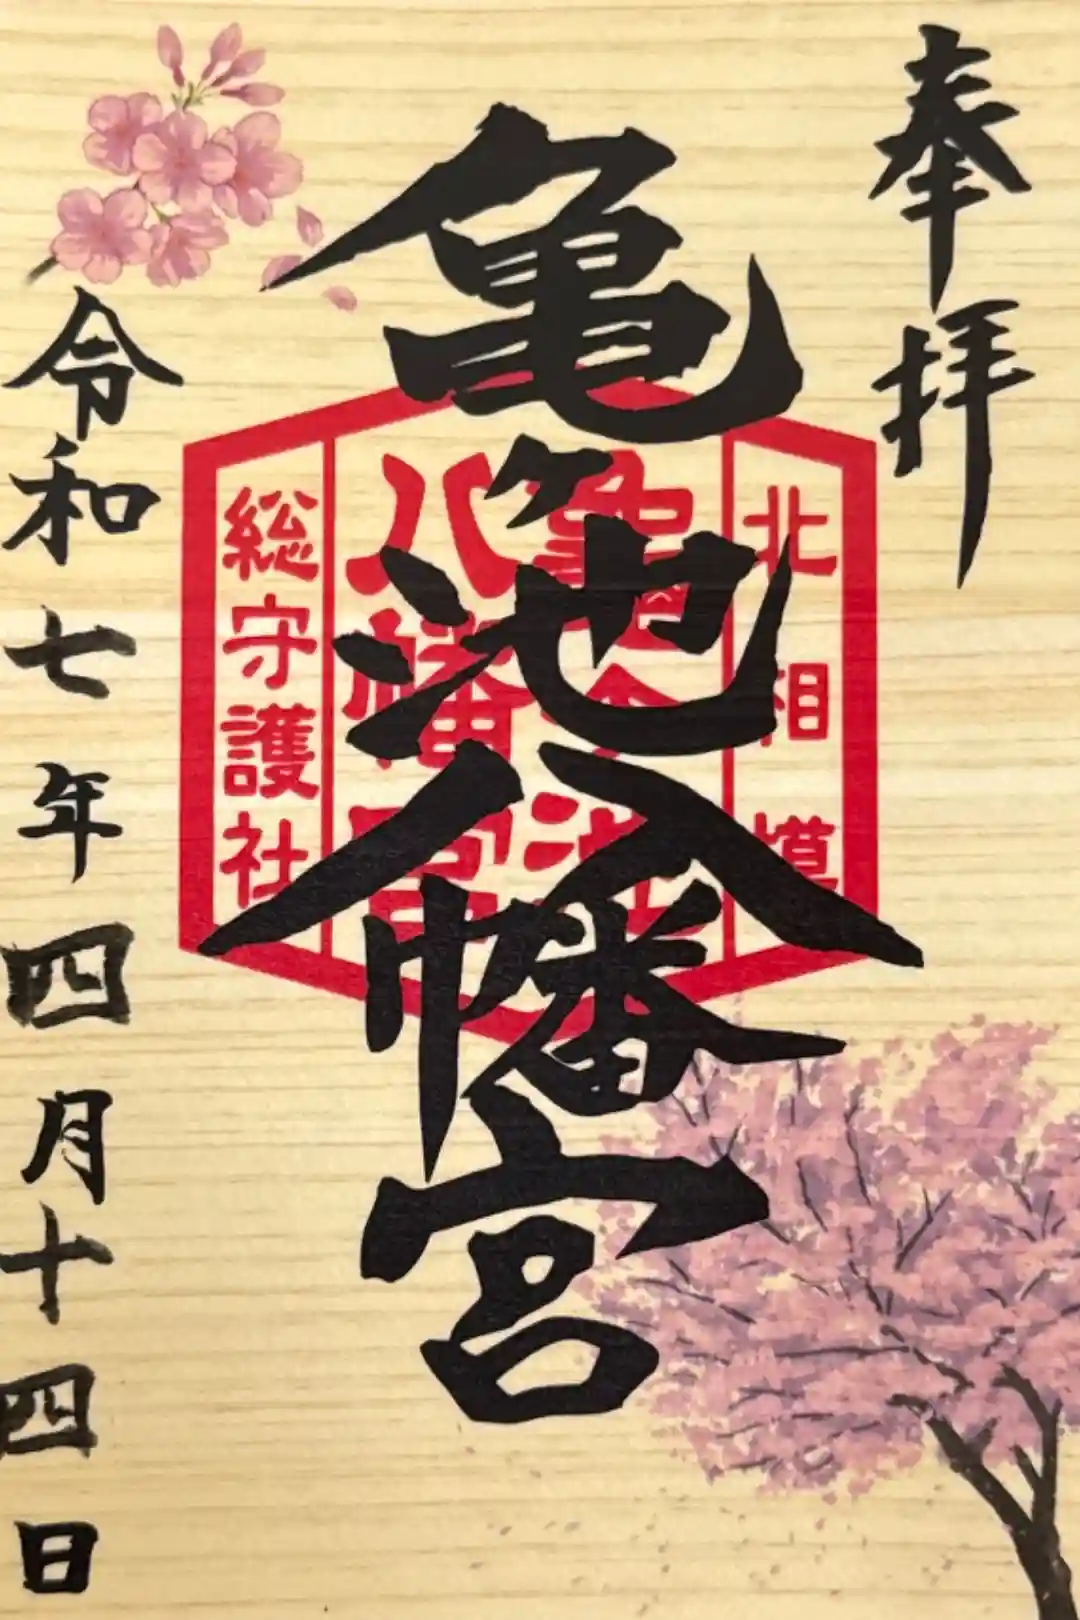 奉拝
亀ヶ池八幡宮
北相模
亀ヶ池
八幡宮
総守護社
令和七年四月十四日